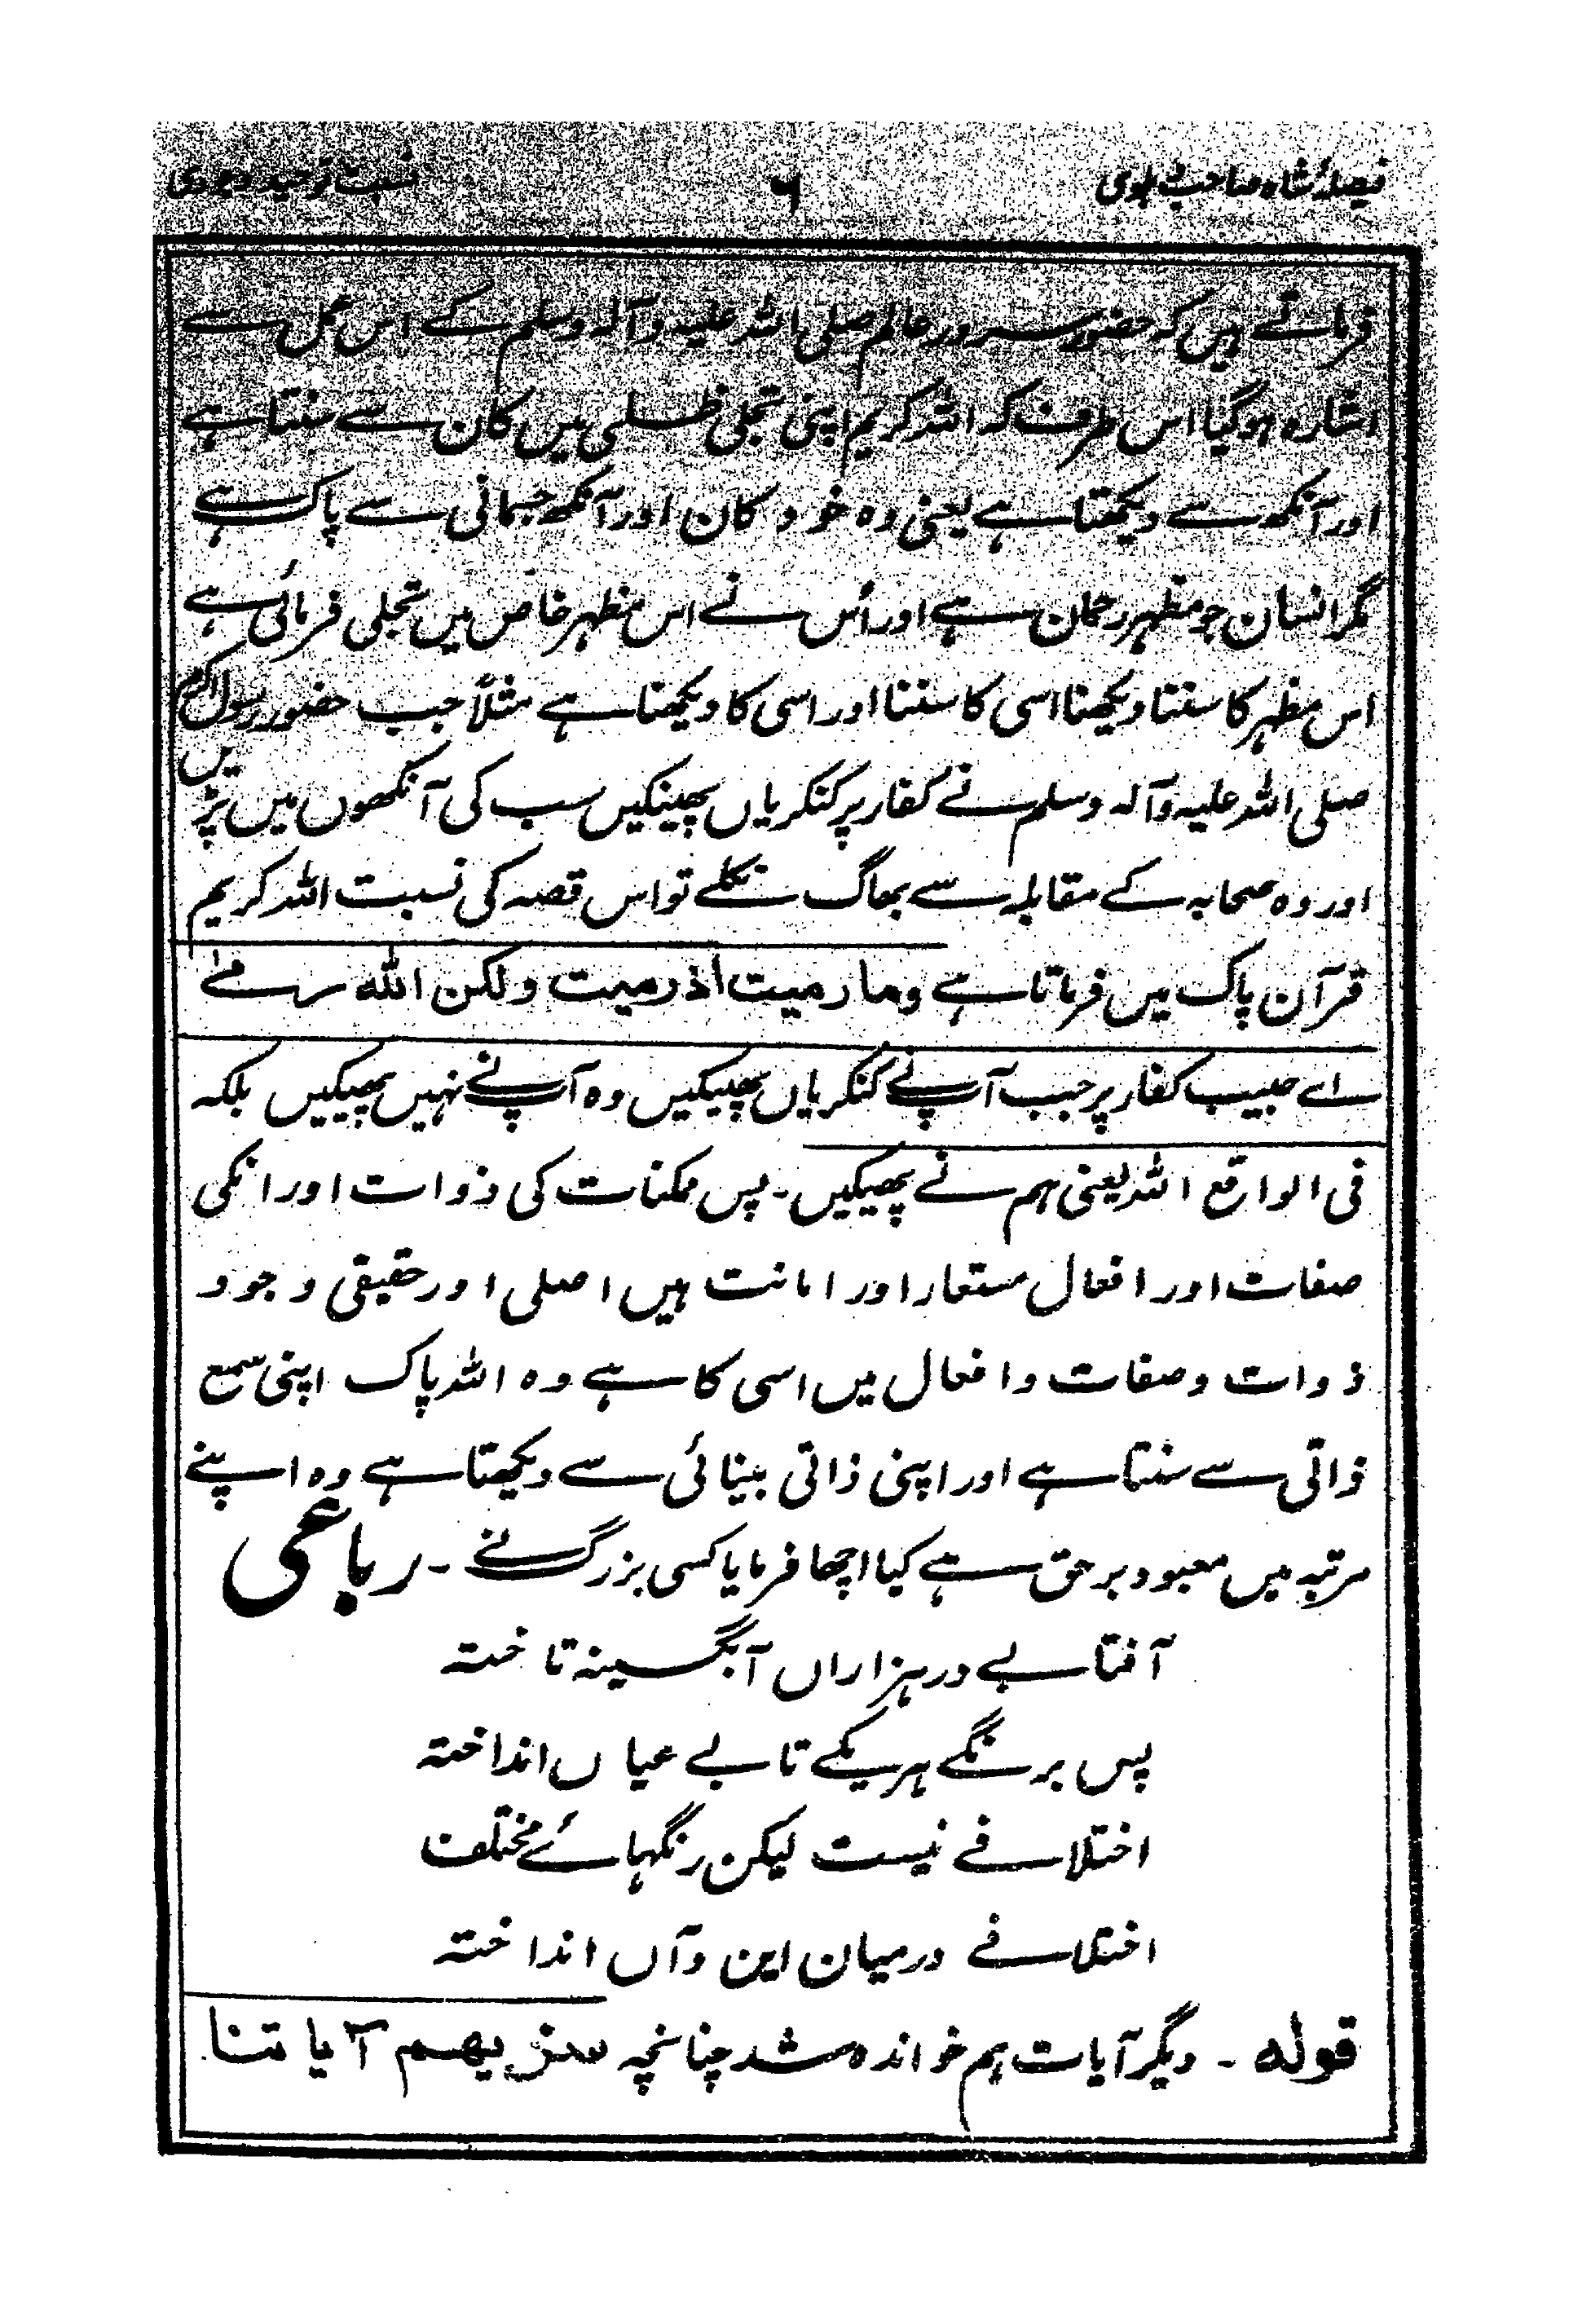 فیصلۂ شاہ صاحب دہلوی ۶ نسبت توحید وجودی
فرماتے ہیں کہ حضور سرور عالم صلی اللہ علیہ وآلہ وسلم کے اس عمل سے
اشارہ ہوگیا اس طرف کہ اللہ کریم اپنی تجلی ظلی میں کان سے سنتا ہے
اور آنکھ سے دیکھتا ہے یعنی وہ خود کان اور آنکھ جسمانی سے پاک ہے
مگر انسان جو مظہر رحمان ہے اور اُس نے اس مظہر خاص میں تجلی فرمائی ہے
اس مظہر کا سننا دیکھنا اسی کا سننا اور اسی کا دیکھنا ہے مثلاً جب حضور رسول اکرم
صلی اللہ علیہ وآلہ وسلم نے کفار پر کنکریاں پھینکیں سب کی آنکھوں میں پڑیں
اور وہ صحابہ کے مقابلہ سے بھاگ نکلے تو اس قصہ کی نسبت اللہ کریم
قرآن پاک میں فرماتا ہے وما رمیت اذ رمیت ولکن اللہ رمےٰ
اے حبیب کفار پر جب آپ نے کنکریاں پھینکیں وہ آپ نے نہیں پھینکیں بلکہ
فی الواقع اللہ یعنی ہم نے پھینکیں۔ پس ممکنات کی ذوات اور انکی
صفات اور افعال مستعار اور امانت ہیں اصلی اور حقیقی وجود
ذوات وصفات وافعال میں اسی کا ہے وہ اللہ پاک اپنی سمع
ذاتی سے سنتا ہے اور اپنی ذاتی بینائی سے دیکھتا ہے وہ اپنے
مرتبہ میں معبود برحق ہے کیا اچھا فرمایا کسی بزرگ نے ۔ رباعی
آفتابے در ہزاراں آبگینہ تاختہ
پس برنگے ہر یکے تابے عیاں انداختہ
اختلافے نیست لیکن رنگہائے مختلف
اختلافے درمیان این وآں انداختہ
قولہ ۔ دیگر آیات ہم خواندہ شد چنانچہ سنریھم آیاتنا